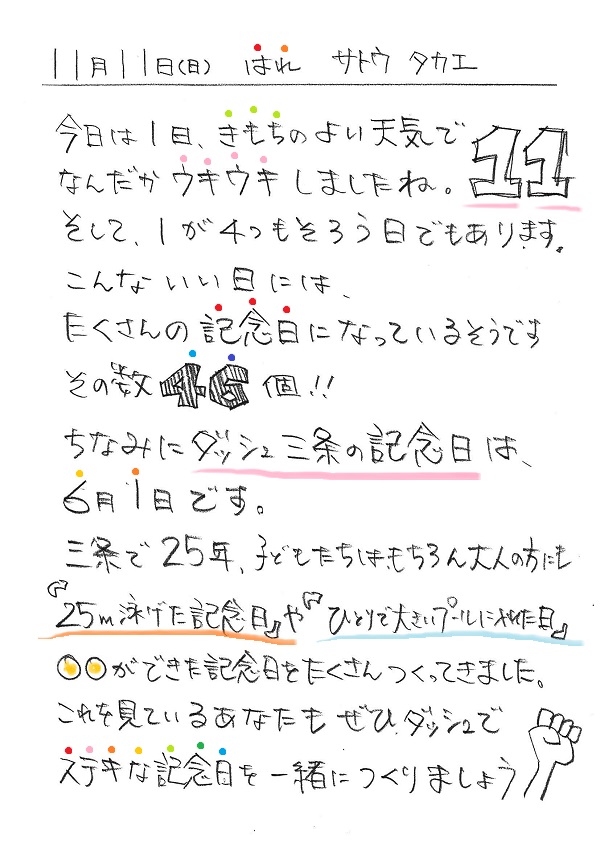 11月11日(日) はれ サトウ タカエ
今日は1日、きもちのよい天気で
なんだかウキウキしましたね。 11
そして、1が4つもそろう日でもあります。
こんないい日には、
たくさんの記念日になっているそうです
その数46個!!
ちなみにダッシュ三条の記念日は、
6月1日です。
三条で25年、子どもたちはもちろん大人の方にも
『25m泳げた記念日』や『ひとりで大きいプールに入れた日』
○○ができた記念日をたくさんつくってきました。
これを見ているあなたもぜひダッシュで
ステキな記念日を一緒につくりましょう